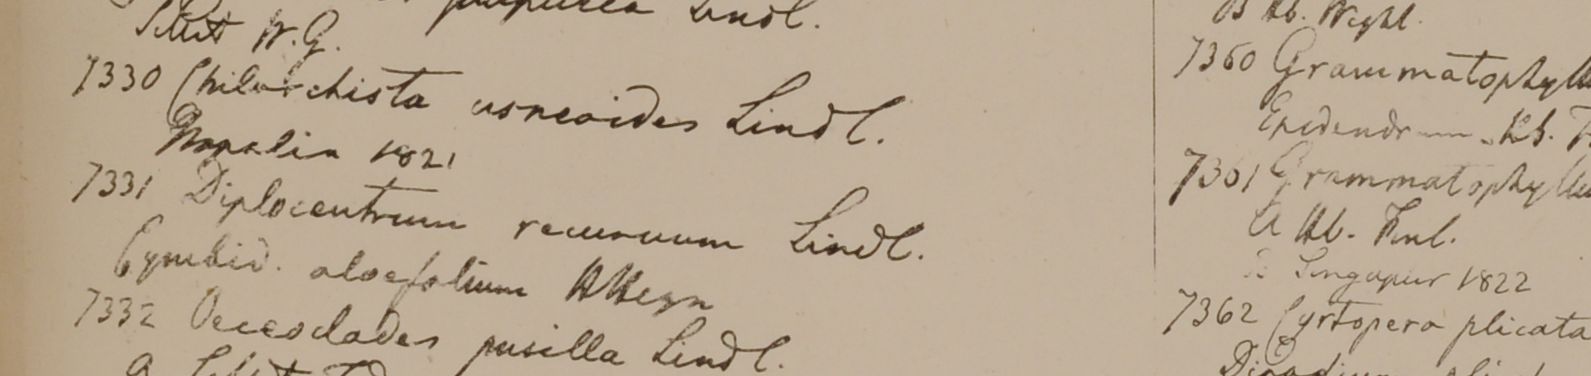 purpurea Lindl.
W.G.
7330 Chilorchista usneoides Lindl.
Napalia 1821
7331 Diplocentrum recurvum Lindl.
Cymbid. aloefolium HHeyn
7332 Oeceoclades pusilla Lindl.
B Hb. Wight.
7360 Grammatophyll
Epidendrum Hb.
7361 Grammatophyll
A Hb. Finl.
B Singapur 1822
7362 Cyrtopera plicata